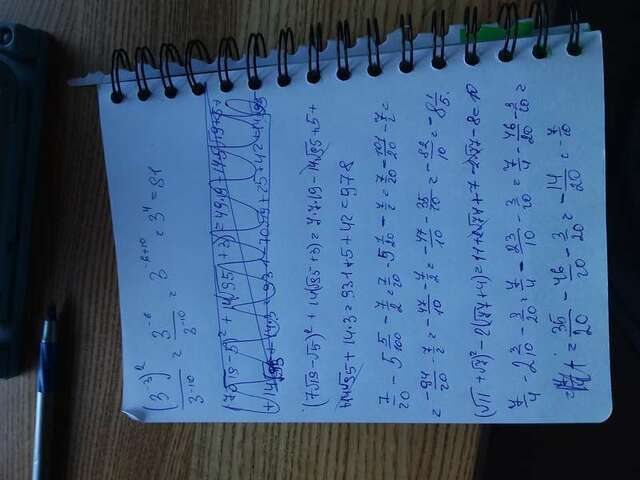 (3⁻³)² / 3⁻¹⁰ = 3⁻⁶ / 3⁻¹⁰ = 3⁻⁶⁺¹⁰ = 3⁴ = 81
(7√19 - √5)² + 14(√95 + 3) = 7·7·19 - 14√95 + 5 +
+14√95 + 14·3 = 931 + 5 + 42 = 978
7/20 - 5 5/100 - 7/2 = 7/20 - 5 1/20 - 7/2 = 7/20 - 101/20 - 7/2 =
= -94/20 - 7/2 = -47/10 - 7/2 = -47/10 - 35/10 = -82/10 = -8 1/5.
(√11 + √7)² - 2(√77 + 4) = 11 + 2√77 + 7 - 2√77 - 8 = 10
7/4 - 2 3/10 - 3/20 = 7/4 - 23/10 - 3/20 = 7/4 - 46/20 - 3/20 =
= 35/20 - 46/20 - 3/20 = -14/20 = -7/10